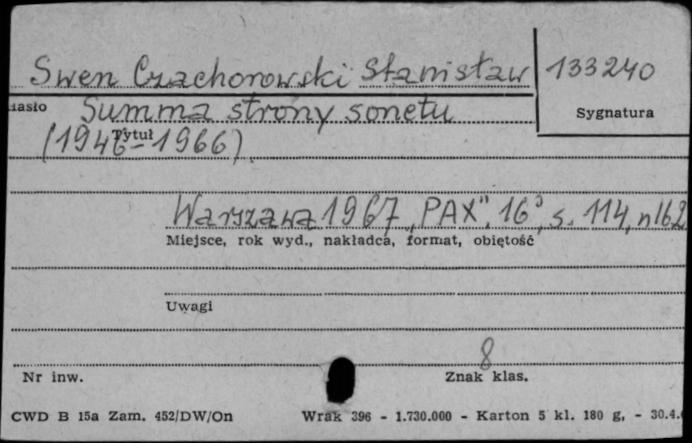 Swen Czachorowski Stanisław 133240
asło Summa strony sonetu Sygnatura
Tytuł
(1946-1966)
Warszawa 1967 "PAX", 16°, s. 114, nlb2
Miejsce, rok wyd., nakładca, format, objętość
Uwagi
8
Nr inw. Znak klas.
CWD B 15a Zam. 452/DW/On Wrak 396 - 1.730.000 - Karton 5 kl. 180 g, - 30.4.